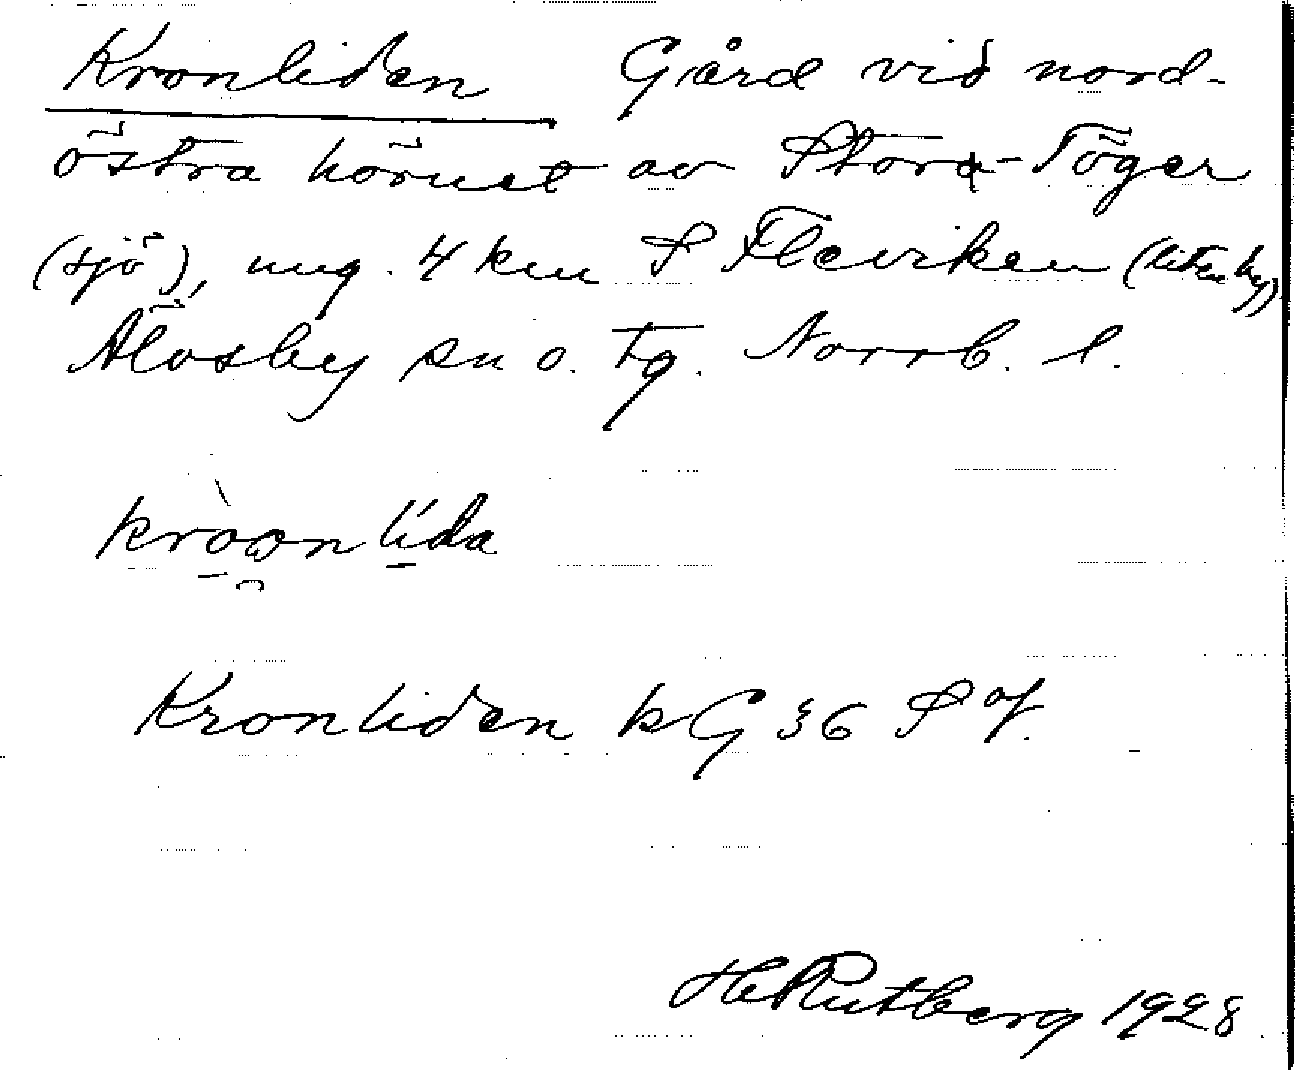 Kronliden Gård vid nord-
östra hörnet av Stora-Töger
(sjö), ung. 4 km S Fleviken (liten by)
Älvsby sn o. tg. Norrb. l.
kròon lída
Kronliden kG 36 S of.
H Rutberg 1928